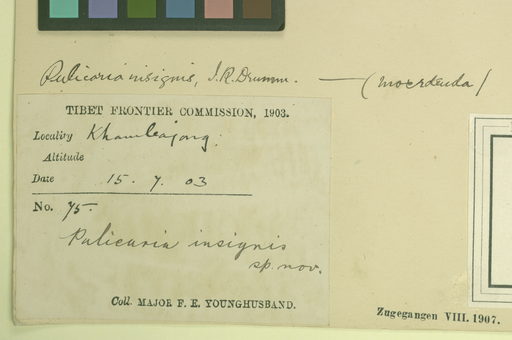 Pulicaria insignis, J.R. Drumm. — (
TIBET FRONTIER COMMISSION, 1903.
Locality Khambajong.
Altitude
Date 15. 7. 03
No. 75.
Pulicaria insignis
sp. nov.
Coll. MAJOR F. E. YOUNGHUSBAND.
Zugegangen VIII. 1907.